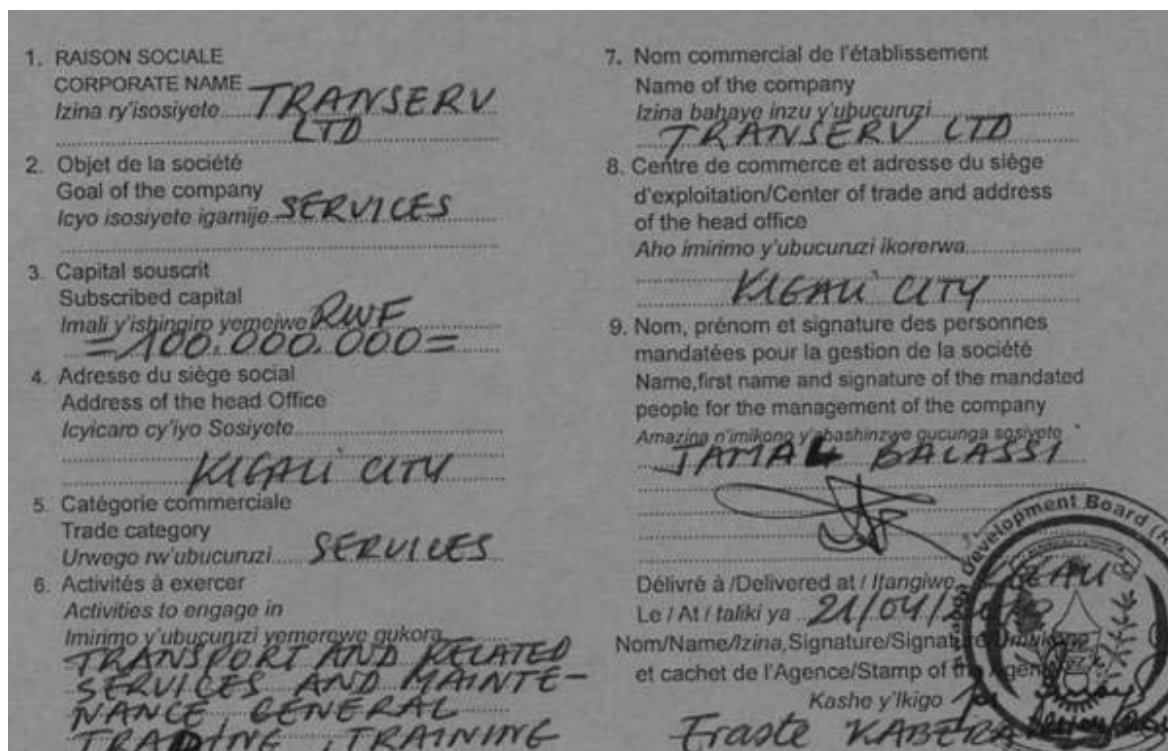 1. RAISON SOCIALE
CORPORATE NAME
Izina ry'isosiyete TRANSERV
LTD
2. Objet de la société
Goal of the company
Icyo isosiyete igamije SERVICES
3. Capital souscrit
Subscribed capital
Imali y'ishingiro yemejwe RWF
=100.000.000=
4. Adresse du siège social
Address of the head Office
Icyicaro cy'iyo Sosiyete
KIGALI CITY
5. Catégorie commerciale
Trade category
Urwego rw'ubucuruzi SERVICES
6. Activités à exercer
Activities to engage in
Imirimo y'ubucuruzi yemerewe gukora
TRANSPORT AND RELATED
SERVICES AND MAINTE-
NANCE, GENERAL
TRADING, TRAINING
7. Nom commercial de l'établissement
Name of the company
Izina bahaye inzu y'ubucuruzi
TRANSERV LTD
8. Centre de commerce et adresse du siège
d'exploitation/Center of trade and address
of the head office
Aho imirimo y'ubucuruzi ikorerwa
KIGALI CITY
9. Nom, prénom et signature des personnes
mandatées pour la gestion de la société
Name,first name and signature of the mandated
people for the management of the company
Amazina n'imikono y'abashinzwe gucunga sosiyete
JAMAL BALASSI
Délivré à /Delivered at / Itangiwe KIGALI
Le / At / taliki ya 21/04/
Nom/Name/Izina,Signature/Signature/Umukono
et cachet de l'Agence/Stamp of the Agency
Kashe y'Ikigo
Eraste KABERA
Development Board